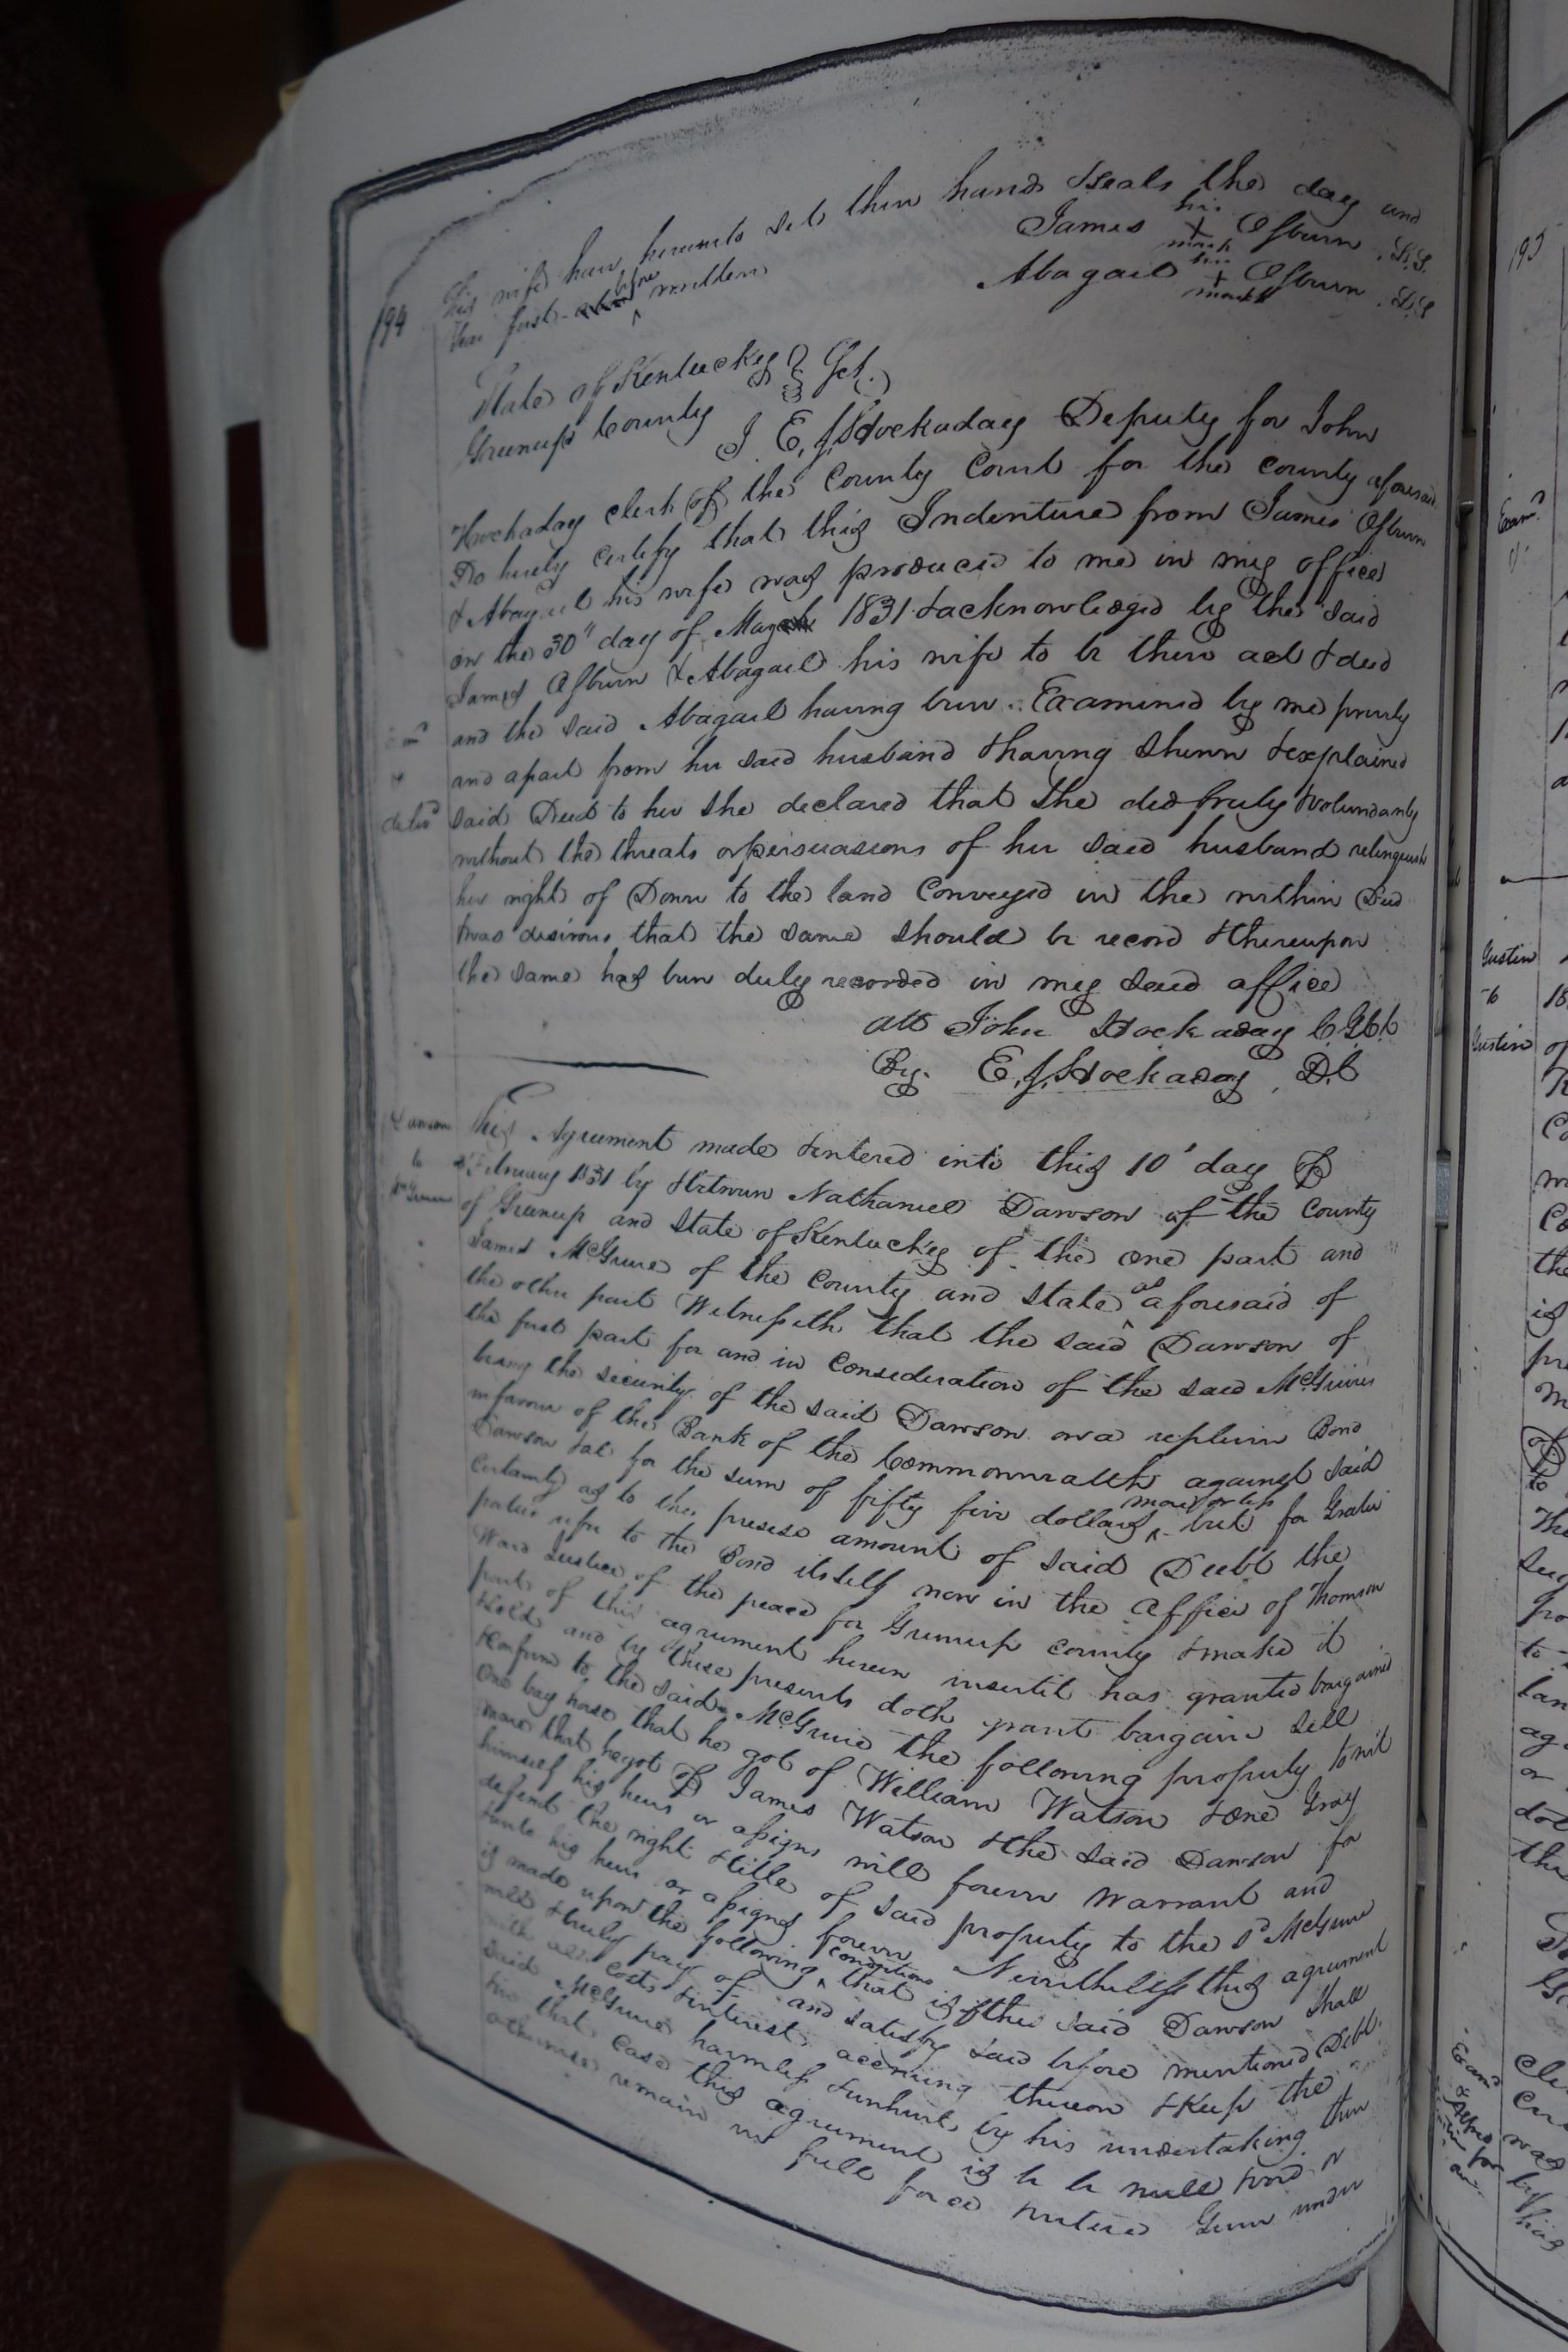 194
his wife have hereunto set their hands & seals the day and
Year first before written
James his X mark Osburn L.S.
Abagail his + mark Osburn L.S
State of Kentucky
Greenup County } Sct.
I E, J, Hockaday Deputy for John
Hockaday clerk of the County Court for the county aforesaid
Do hereby certify that this Indenture from James Osburn
& Abagail his wife was produced to me in my office
on the 30" day of May 1831 & acknowledged by the said
James Osburn & Abagail his wife to be their act & deed
and the said Abagail having been Examined by me privily
and apart from her said husband & having shewn & explained
delivd
said Deed to her she declared that she did freely & volundarily
without the threats or persuasions of her said husband relinquish
her right of Dower to the land Conveyed in the within Deed
& was desirous that the same should be record & thereupon
the same has been duly recorded in my said office
att John Hockaday C.G.C.C
By. E, J, Hockaday, D.C
Dawson
to
McGuire
This Agreement made & entered into this 10' day of
February 1831 by & between Nathaniel Dawson of the County
of Greenup and State of Kentuckey of the one part and
James McGuire of the County and State as aforesaid of
the other part Witnesseth that the said Dawson of
the first part for and in Consideration of the said McGuires
being the security of the said Dawson on a replevin Bond
in favour of the Bank of the Commonwealth against said
Dawson &al for the sum of fifty five dollars more or less but for Grater
Certainty as to the presise amount of said Debt the
parties refer to the Bond itself now in the office of Thomson
Ward Justice of the peace for Greenup county & make it
part of this agreement herein insertit has granted bargained
& sold and by these presents doth grant bargain sell
& Confirm to the said McGuire the following property towit
One bay horse that he got of William Watson & One Gray
mare that he got of James Watson & the said Dawson for
himself his heirs or assigns will forever Warrant and
defend the right & title of said property to the sd McGuire
& unto his heirs or assigns forever Nevertheless this agreement
is made upon the following conditions that is if the said Dawson shall
well & truly pay of and satisfy said before mentioned Debt
with all costs & interest accruing thereon & Keep the
said McGuire harmless & unhurt by his undertaking then
in that case this agreement is to be null & void or
otherwise remain in full force & vertue Given under
195
Exam.d
Justin
to
Justin